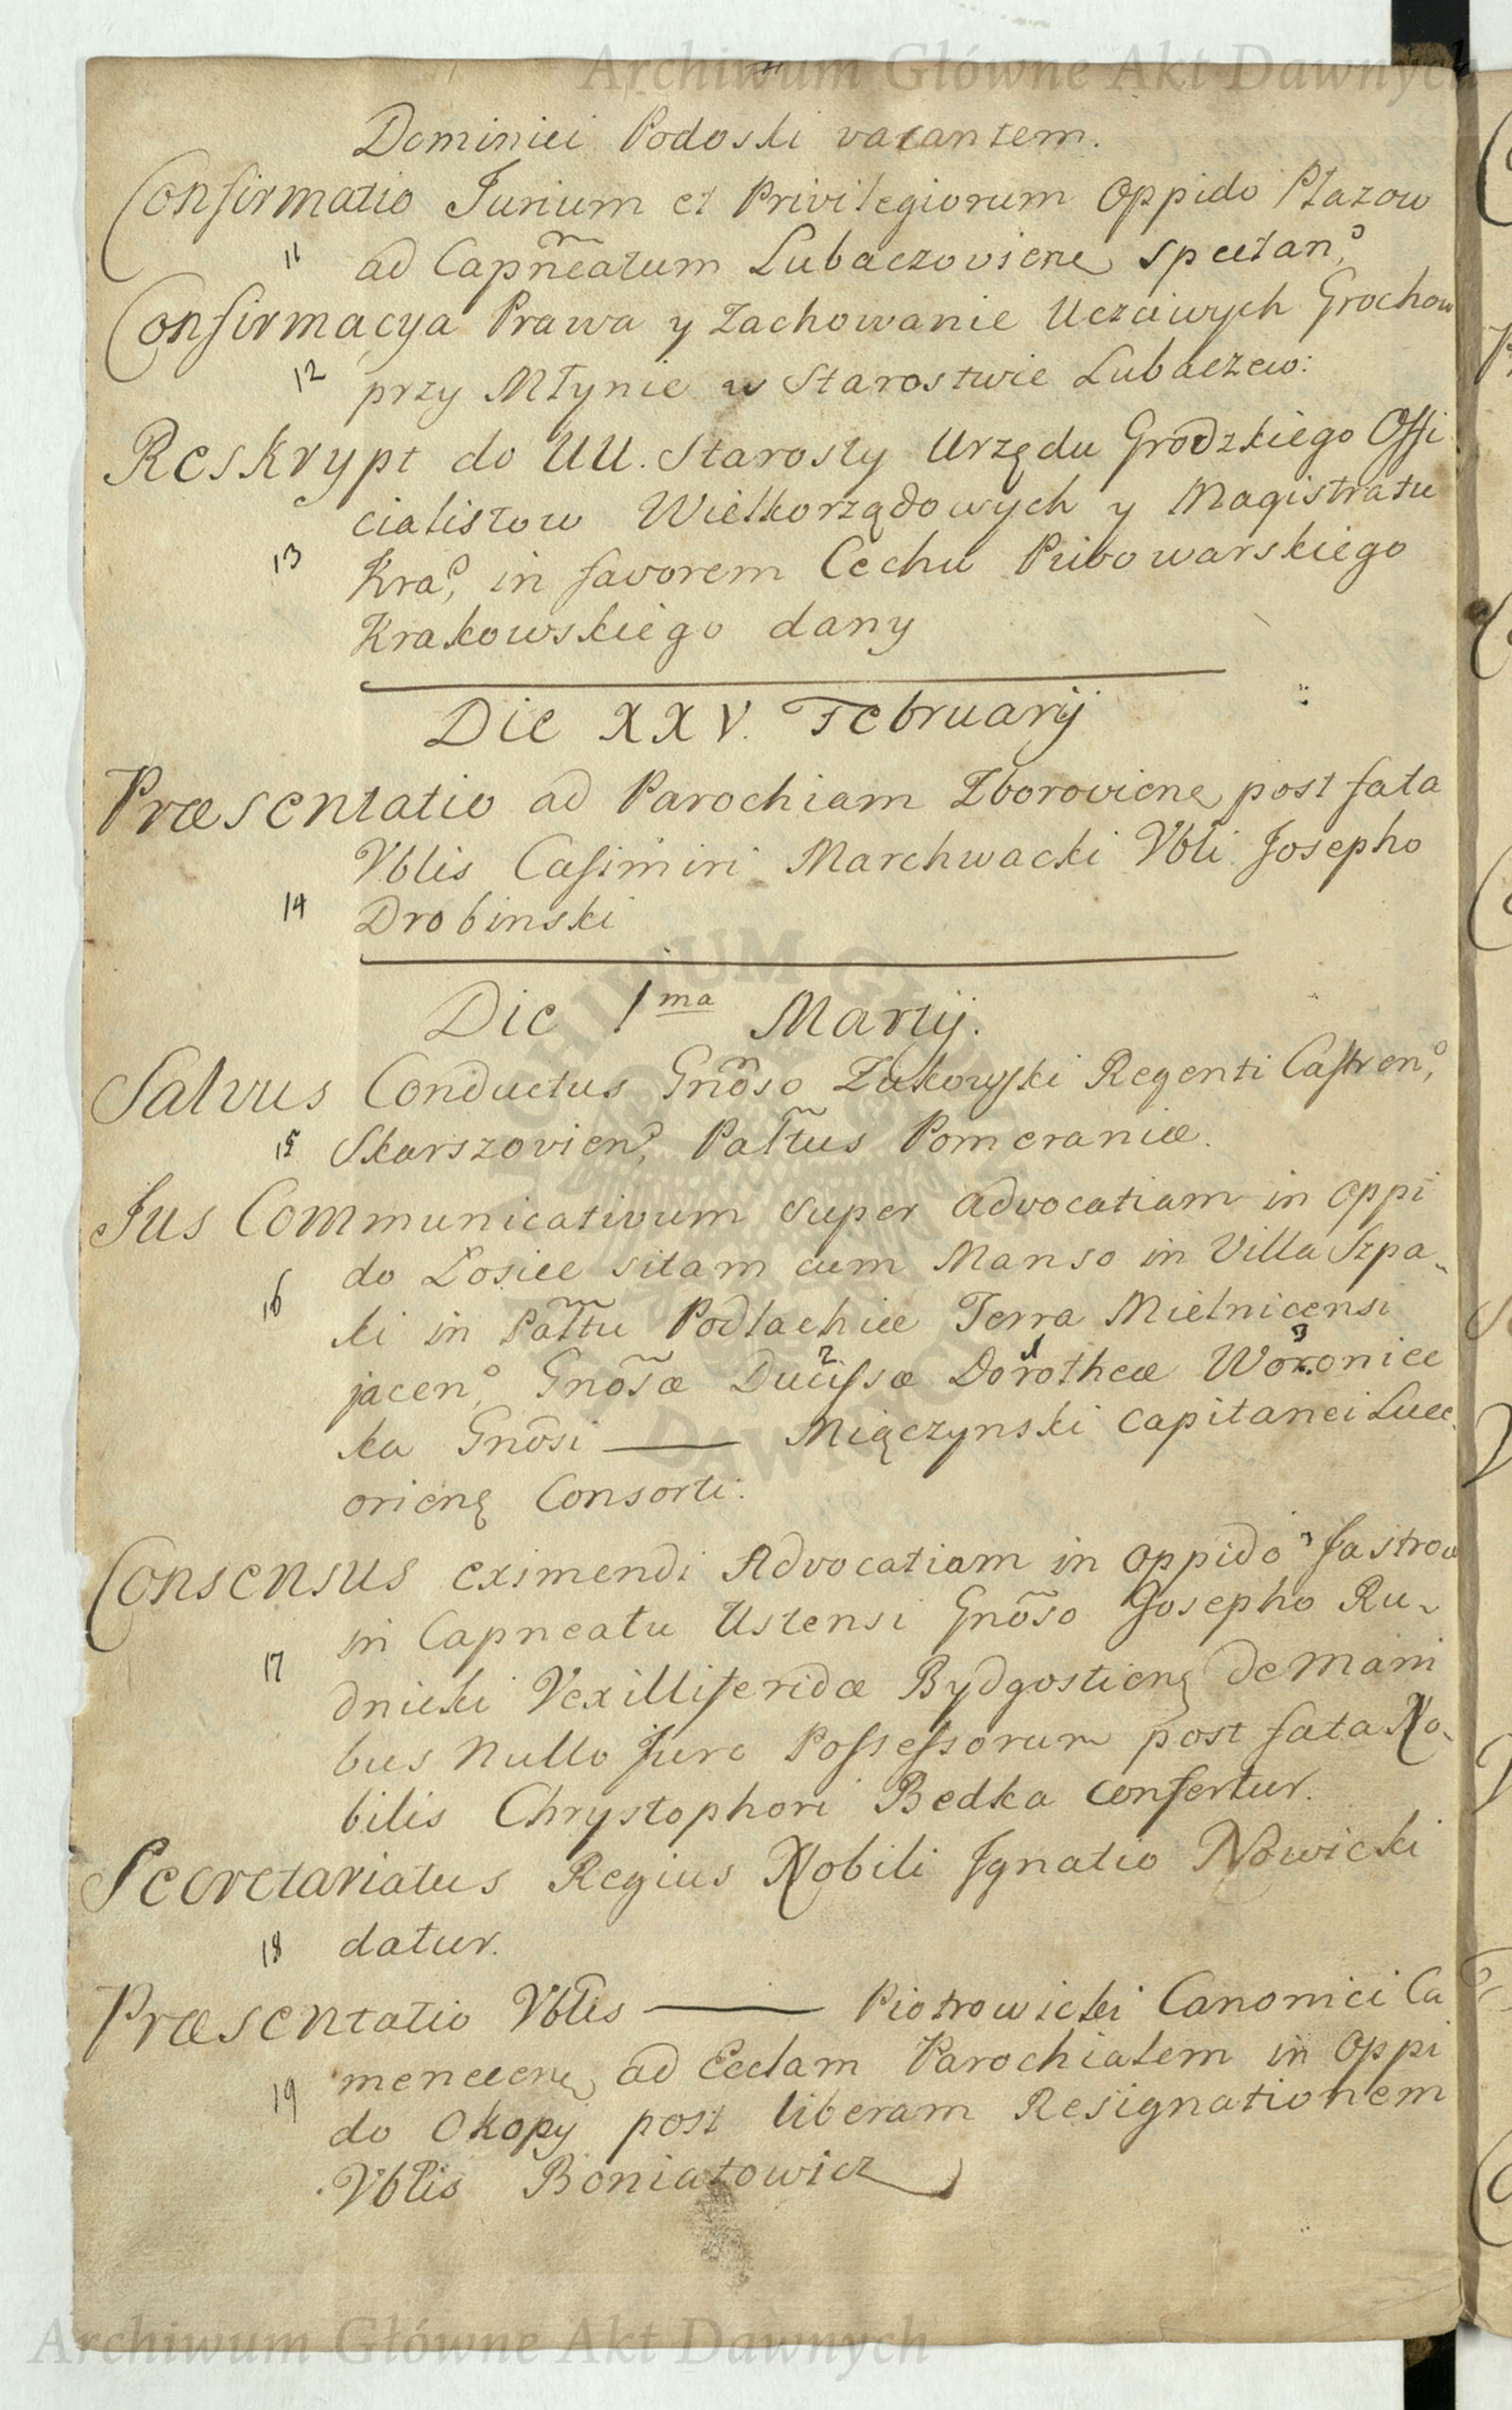 Archiwum Główne Akt Dawnych
Dominici Podoski vacantem.
Confirmatio Jurium et Privilegiorum Oppido Płazow
11 ad Capn̄eatum Lubaczoviene spectan,
Confirmacya Prawa y Zachowanie Uczciwych Grochow
12 przy Młynie w Starostwie Lubaczew:
Reskrypt do UU. Starosty Urzędu Grodzkiego Offi
cialistow Wielkorządowych y Magistratu
13 Kra, in favorem Cechu Piwowarskiego
Krakowskiego dany
Die XXV. Februarij
Præsentatio ad Parochiam Zboroviene post fata
Vblis Casimiri Marchwacki Vbli Josepho
14 Drobinski
Die 1ma Martij.
Salvus Conductus Gnõso Zukowski Regenti Castren,
15 Skarszovien, Pałtus Pomeraniæ.
Jus Communicativum super Advocatiam in Oppi
do Łosice sitam cum Manso in Villa Szpa-
16 ki in Pałtu Podlachiæ Terra Mielnicensi
jacen, Gnõsæ Ducissæ 2 Dorotheæ 1 Woroniec 3
ka Gnõsi —— Miączynski Capitanei Luce
orienę Consorti.
Consensus eximendi Advocatiam in Oppido Jastrow
in Capneatu Ustensi Gnõso Josepho Ru-
17 dnicki Vexilliferidæ Bydgostienę de Mani
bus Nullo Jure Possessorum post fata No-
bilis Chrystophori Bedka confertur.
Secretariatus Regius Nobili Ignatio Nowicki
18 datur.
Præsentatio Vblis —— Piotrowicki Canonici Ca
menecene ad Ecclam Parochialem in Oppi
19 do Okopy post liberam Resignationem
Vblis Boniatowicz
Archiwum Główne Akt Dawnych